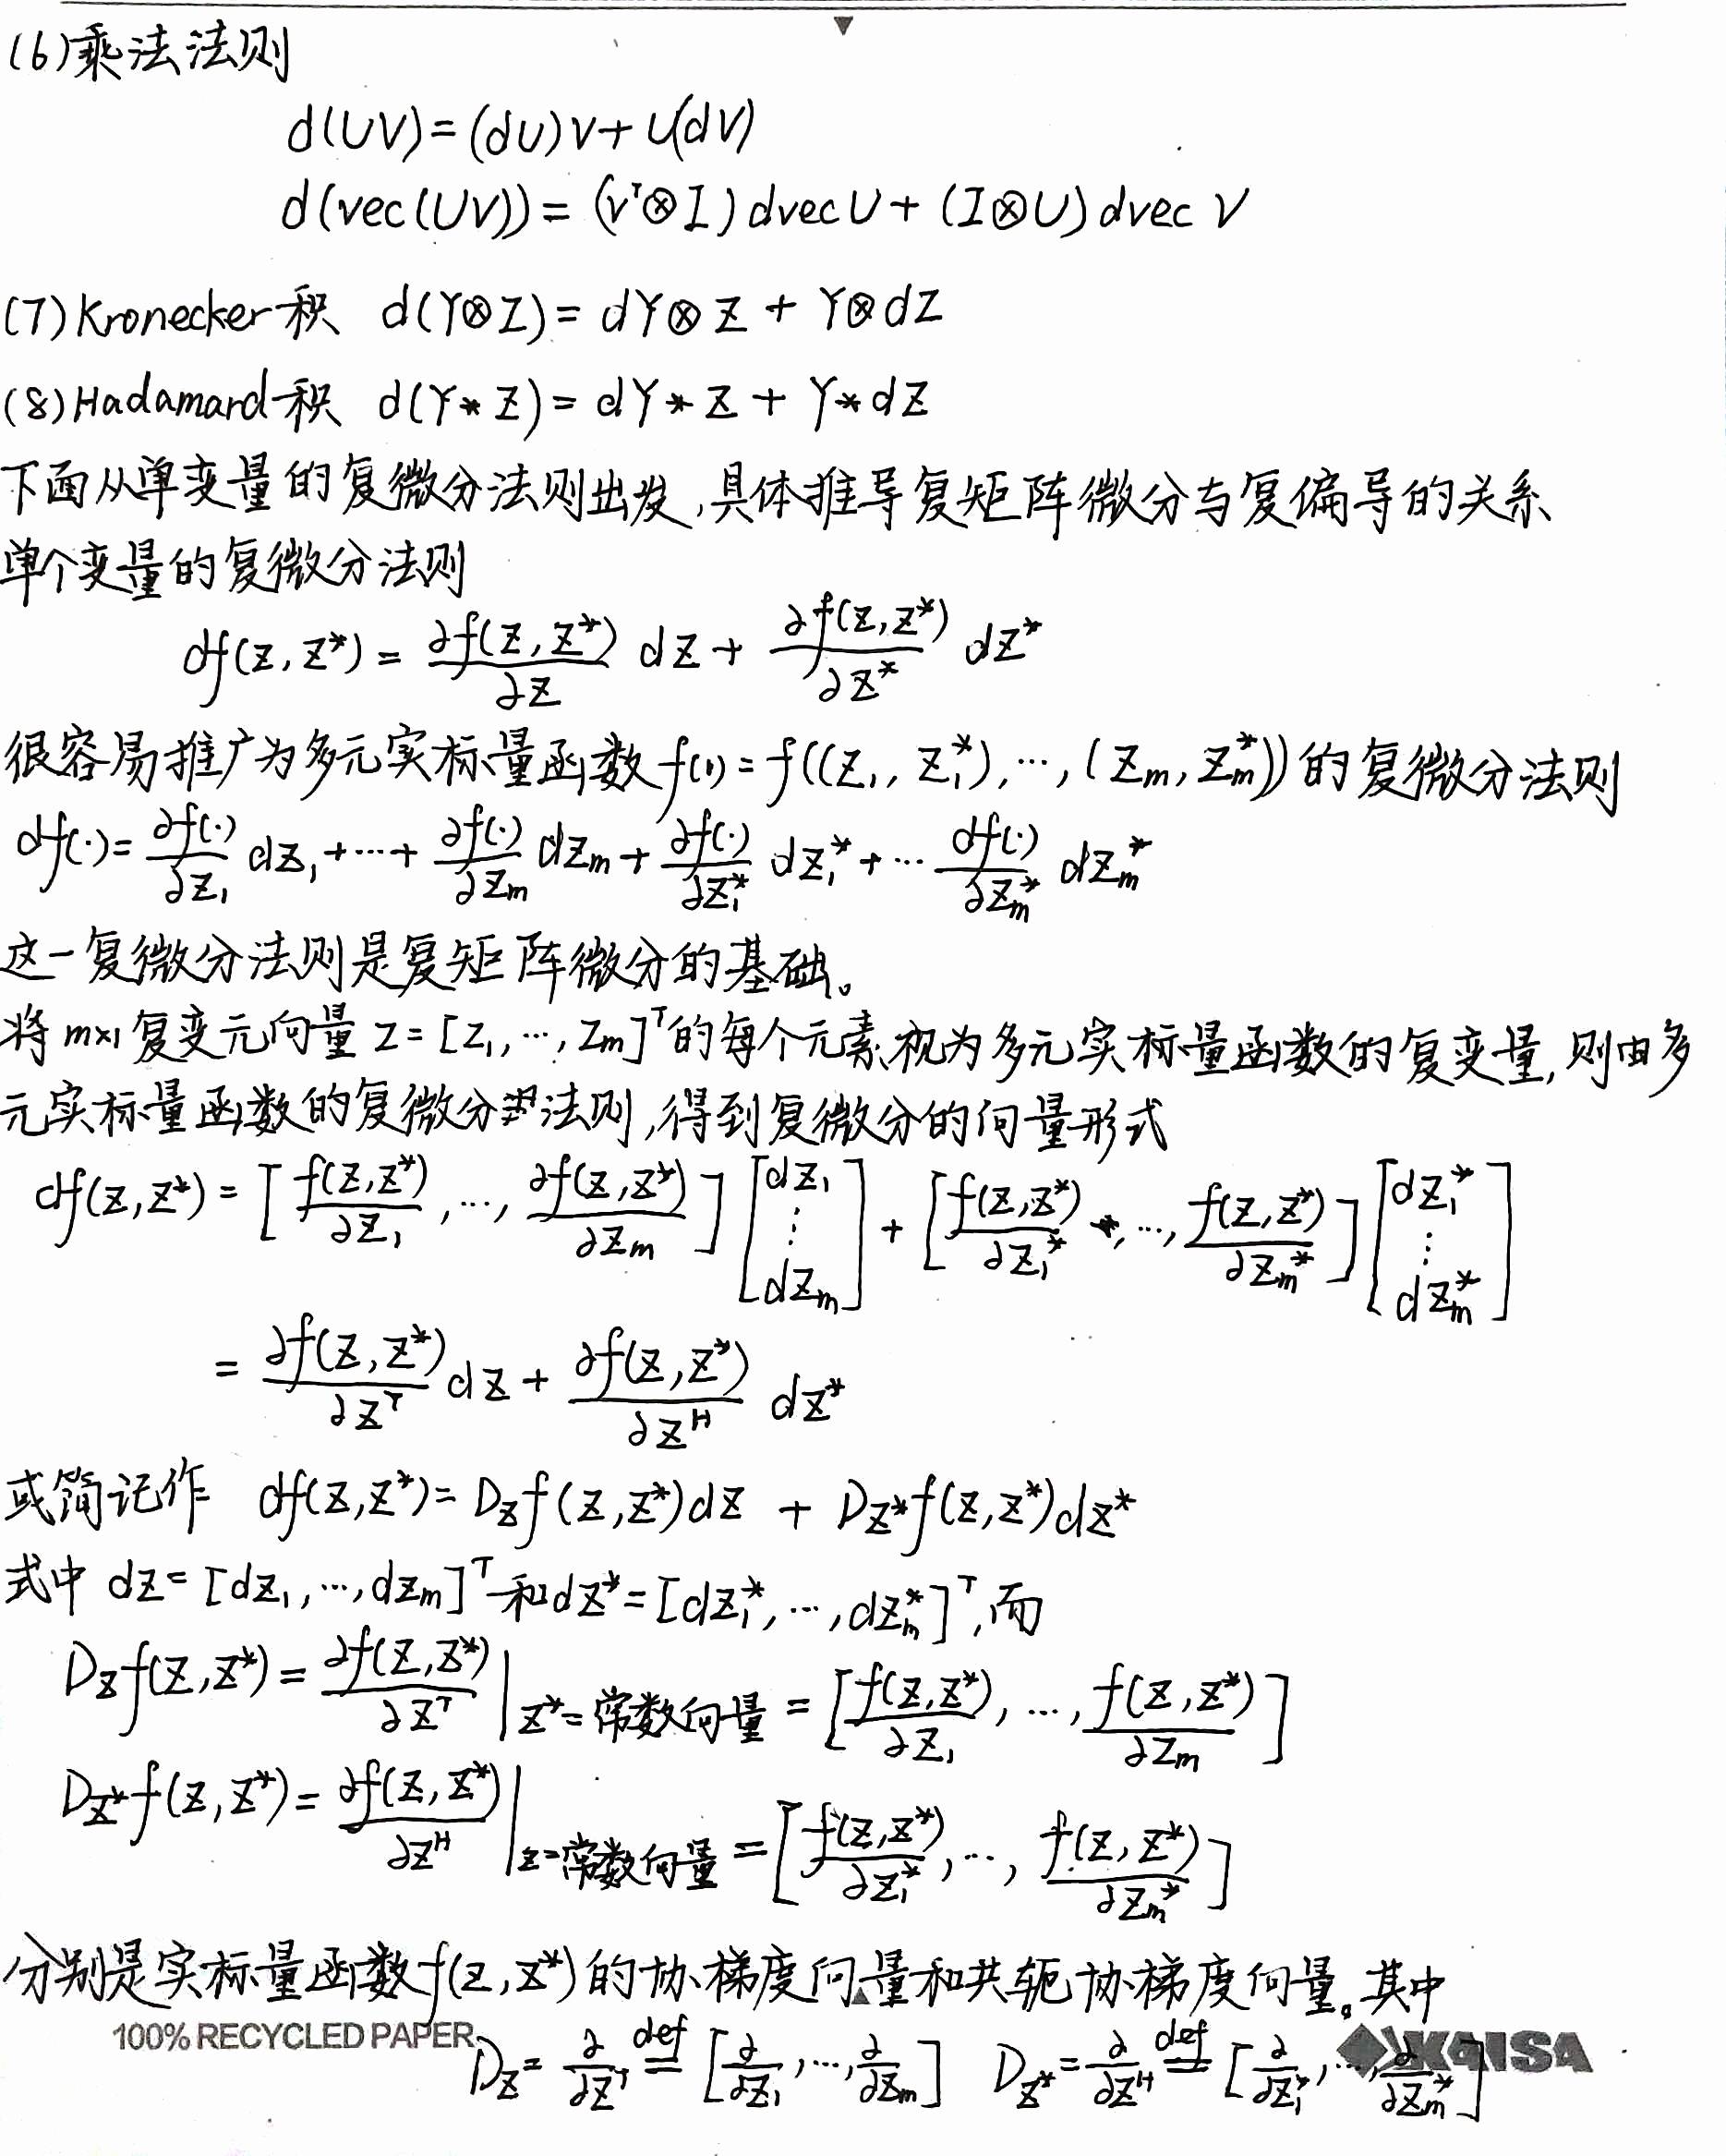 (6)乘法法则
d(UV)=(dU)V+U(dV)
d(vec(UV))=(V^T⊗I)dvecU+(I⊗U)dvec V
(7)Kronecker积 d(Y⊗Z)=dY⊗Z+Y⊗dZ
(8)Hadamard积 d(Y*Z)=dY*Z+Y*dZ
下面从单变量的复微分法则出发,具体推导复矩阵微分与复偏导的关系
单个变量的复微分法则
df(z,z*)=\frac{∂f(z,z*)}{∂z}dz+\frac{∂f(z,z*)}{∂z*}dz*
很容易推广为多元实标量函数f(·)=f((z₁,z₁*),…,(z_m,z_m*))的复微分法则
df(·)=\frac{∂f(·)}{∂z₁}dz₁+…+\frac{∂f(·)}{∂z_m}dz_m+\frac{∂f(·)}{∂z₁*}dz₁*+…\frac{∂f(·)}{∂z_m*}dz_m*
这一复微分法则是复矩阵微分的基础。
将m×1复变元向量z=[z₁,…,z_m]^T的每个元素视为多元实标量函数的复变量,则由多
元实标量函数的复微分法则,得到复微分的向量形式
df(z,z*)=[\frac{f(z,z*)}{∂z₁},…,\frac{∂f(z,z*)}{∂z_m}][dz₁ ⋮ dz_m]+[\frac{f(z,z*)}{∂z₁*},…,\frac{f(z,z*)}{∂z_m*}][dz₁* ⋮ dz_m*]
=\frac{∂f(z,z*)}{∂z^T}dz+\frac{∂f(z,z*)}{∂z^H}dz*
或简记作 df(z,z*)=D_z f(z,z*)dz + D_{z*}f(z,z*)dz*
式中 dz=[dz₁,…,dz_m]^T和dz*=[dz₁*,…,dz_m*]^T,而
D_z f(z,z*)=\frac{∂f(z,z*)}{∂z^T}|_{z*=常数向量}=[\frac{f(z,z*)}{∂z₁},…,\frac{f(z,z*)}{∂z_m}]
D_{z*}f(z,z*)=\frac{∂f(z,z*)}{∂z^H}|_{z=常数向量}=[\frac{f(z,z*)}{∂z₁*},…,\frac{f(z,z*)}{∂z_m*}]
分别是实标量函数f(z,z*)的协梯度向量和共轭协梯度向量。其中
100% RECYCLED PAPER
D_z=\frac{∂}{∂z^T}\overset{def}{=}[\frac{∂}{∂z₁},…,\frac{∂}{∂z_m}] D_{z*}=\frac{∂}{∂z^H}\overset{def}{=}[\frac{∂}{∂z₁*},…,\frac{∂}{∂z_m*}]
KAISA